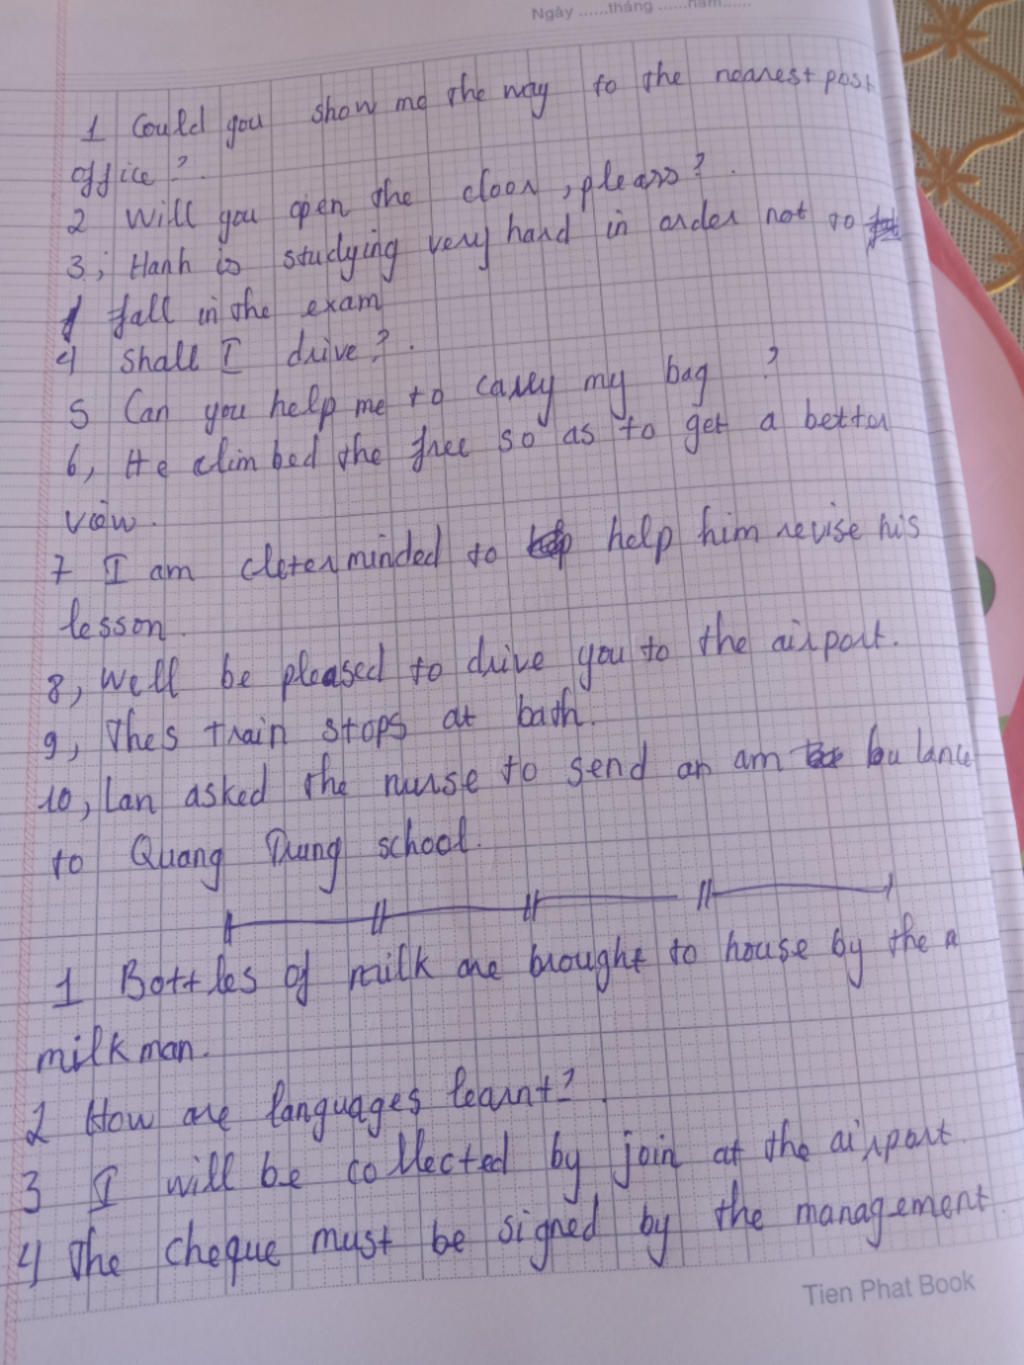 Ngày ......tháng ......năm......
1 Could you show me the way to the nearest post
office ? .
2 Will you open the door , pleass ? .
3 ; Hanh is studying very hard in order not to
fall in the exam
4 Shall I drive ? .
5 Can you help me to carry my bag ?
6, He clim bed the free so as to get a better
view .
7 I am determinded to help him revise his
lesson .
8, We'll be pleased to drive you to the airport .
9, Thes train stops at bath .
10, Lan asked the nurse to send an am bu lance
to Quang Dung school .
1 Bottles of milk are brought to house by the a
milk man .
2 How are languages learnt ? .
3 I will be collected by join at the airport .
4 The cheque must be signed by the management .
Tien Phat Book